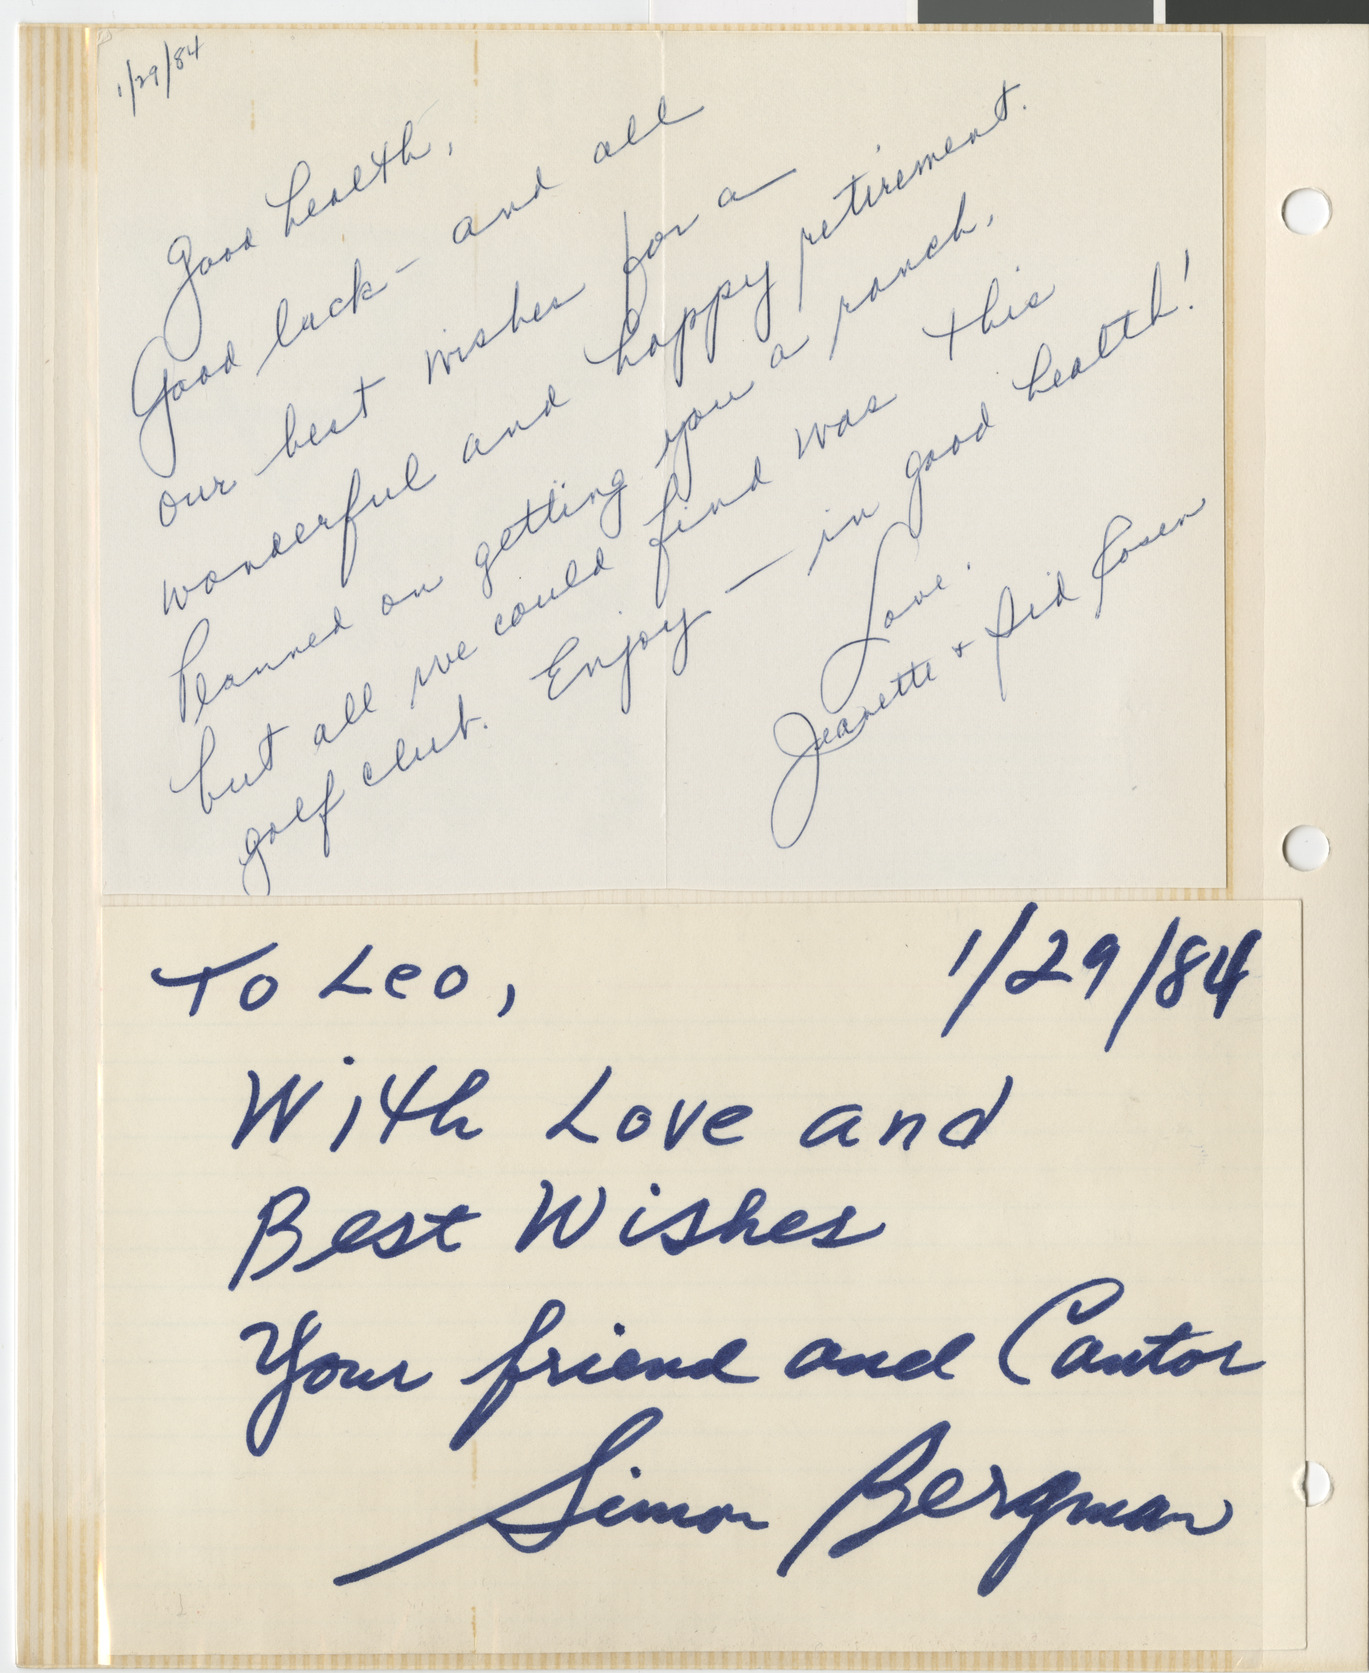 1/29/84
Good health,
Good luck - and all
our best wishes for a
wonderful and happy retirement.
Planned on getting you a ranch,
but all we could find was this
golf club. Enjoy - in good health!
Love.
Jeanette + Sid Rosen
To Leo,
1/29/84
With Love and
Best Wishes
Your friend and Cantor
Simon Bergman